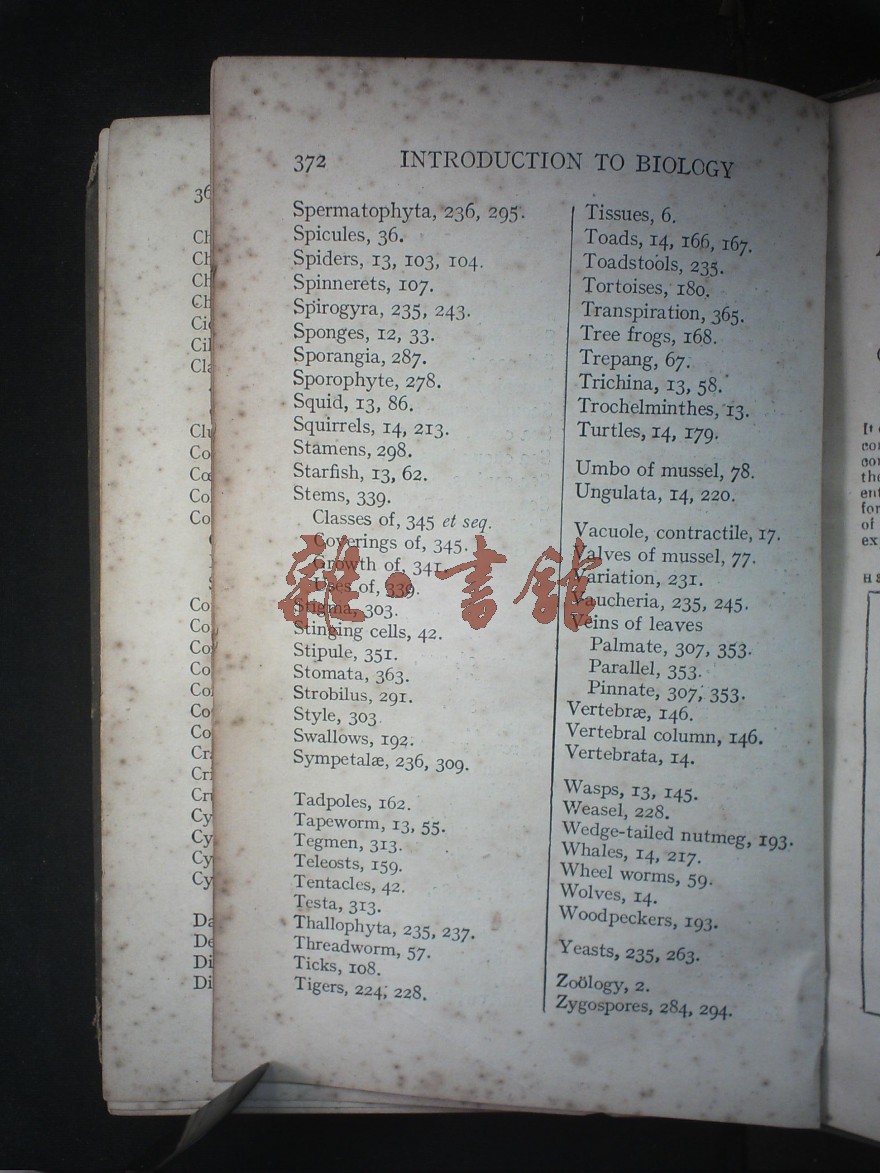 372 INTRODUCTION TO BIOLOGY
Spermatophyta, 236, 295.
Spicules, 36.
Spiders, 13, 103, 104.
Spinnerets, 107.
Spirogyra, 235, 243.
Sponges, 12, 33.
Sporangia, 287.
Sporophyte, 278.
Squid, 13, 86.
Squirrels, 14, 213.
Stamens, 298.
Starfish, 13, 62.
Stems, 339.
Classes of, 345 et seq.
Coverings of, 345.
Growth of, 341.
Uses of, 339.
Stigma, 303.
Stinging cells, 42.
Stipule, 351.
Stomata, 363.
Strobilus, 291.
Style, 303
Swallows, 192.
Sympetalæ, 236, 309.
Tadpoles, 162.
Tapeworm, 13, 55.
Tegmen, 313.
Teleosts, 159.
Tentacles, 42.
Testa, 313.
Thallophyta, 235, 237.
Threadworm, 57.
Ticks, 108.
Tigers, 224, 228.
Tissues, 6.
Toads, 14, 166, 167.
Toadstools, 235.
Tortoises, 180.
Transpiration, 365.
Tree frogs, 168.
Trepang, 67.
Trichina, 13, 58.
Trochelminthes, 13.
Turtles, 14, 179.
Umbo of mussel, 78.
Ungulata, 14, 220.
Vacuole, contractile, 17.
Valves of mussel, 77.
Variation, 231.
Vaucheria, 235, 245.
Veins of leaves
Palmate, 307, 353.
Parallel, 353.
Pinnate, 307, 353.
Vertebræ, 146.
Vertebral column, 146.
Vertebrata, 14.
Wasps, 13, 145.
Weasel, 228.
Wedge-tailed nutmeg, 193.
Whales, 14, 217.
Wheel worms, 59.
Wolves, 14.
Woodpeckers, 193.
Yeasts, 235, 263.
Zoölogy, 2.
Zygospores, 284, 294.
雜·書館